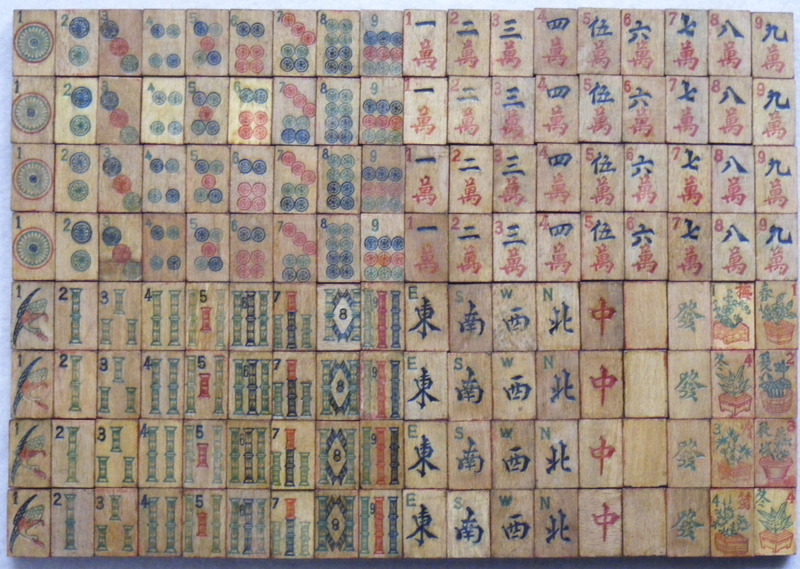 1 2 3 4 5 6 7 8 9 1 一 2 二 3 三 4 四 5 伍 6 六 7 七 8 八 9 九
萬 萬 萬 萬 萬 萬 萬 萬 萬
1 2 3 4 5 6 7 8 9 1 一 2 二 3 三 4 四 5 伍 6 六 7 七 8 八 9 九
萬 萬 萬 萬 萬 萬 萬 萬 萬
1 2 3 4 5 6 7 8 9 1 一 2 二 3 三 4 四 5 伍 6 六 7 七 8 八 9 九
萬 萬 萬 萬 萬 萬 萬 萬 萬
1 2 3 4 5 6 7 8 9 1 一 2 二 3 三 4 四 5 伍 6 六 7 七 8 八 9 九
萬 萬 萬 萬 萬 萬 萬 萬 萬
1 2 3 4 5 6 7 8 9 E 東 S 南 W 西 N 北 中 發 梅 春 1
1 2 3 4 5 6 7 8 9 E 東 S 南 W 西 N 北 中 發 冬 4 夏 2
1 2 3 4 5 6 7 8 9 E 東 S 南 W 西 N 北 中 發 3 秋 3
1 2 3 4 5 6 7 8 9 E 東 S 南 W 西 N 北 中 發 4 冬 4